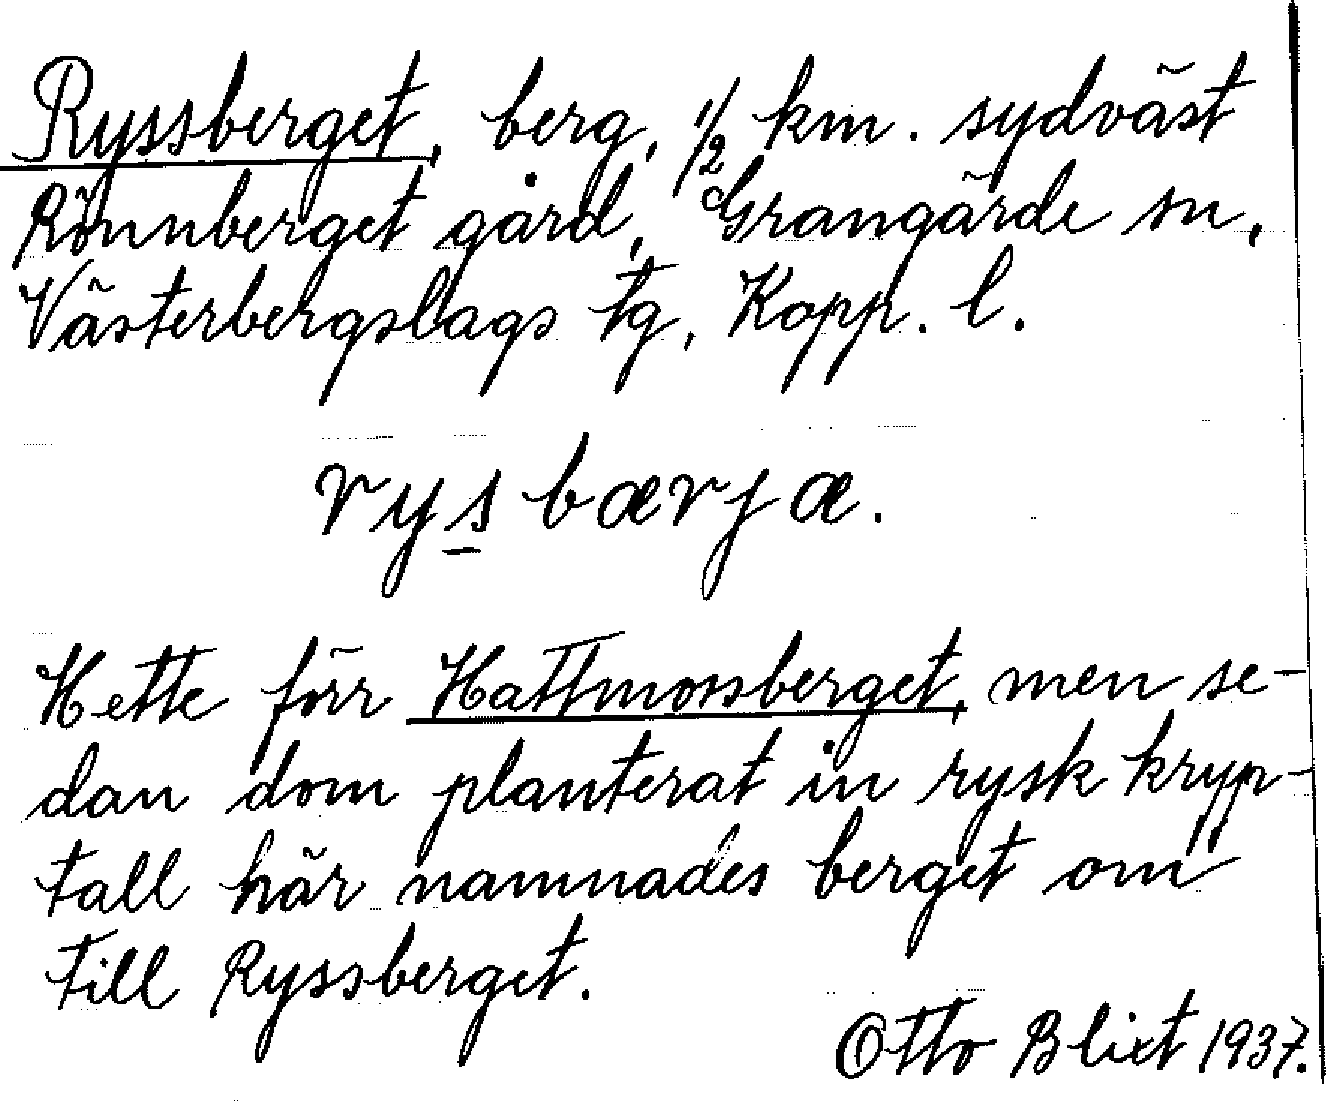 Ryssberget, berg, 1/2 km. sydväst
Rönnberget gård, Grangärde sn,
Västerbergslags tg, Kopp. l.
rysbærjæ.
Hette förr Hattmossberget, men se-
dan dom planterat in rysk kryp-
tall här namnades berget om
till Ryssberget.
Otto Blixt 1937.